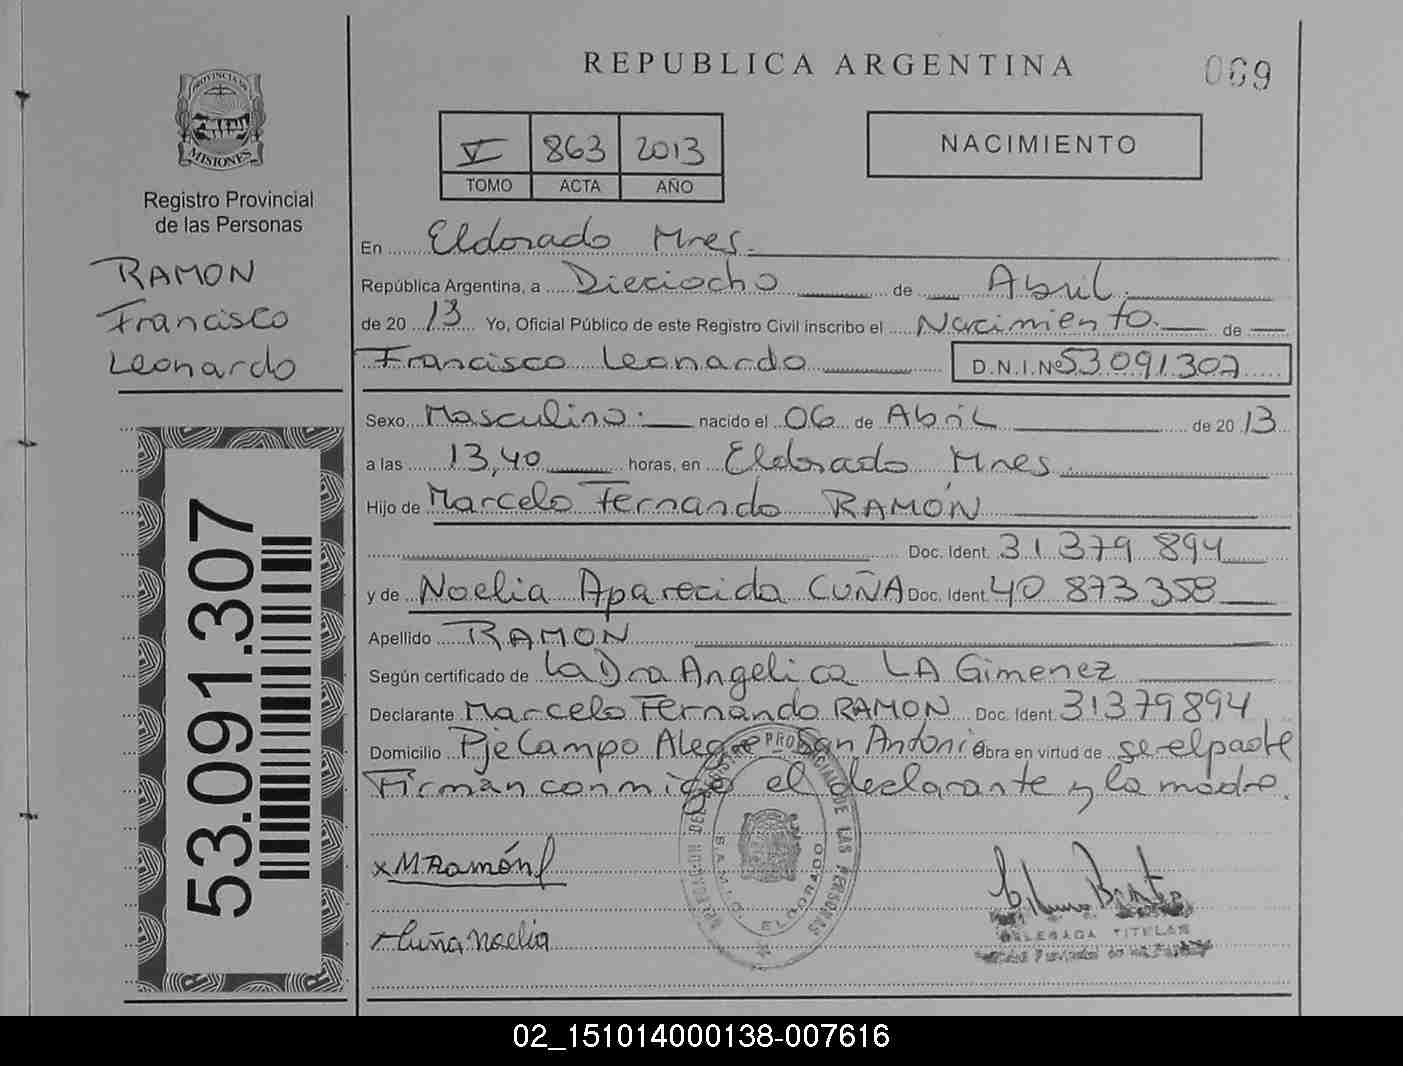 REPUBLICA ARGENTINA
069
PROVINCIA DE
MISIONES
Registro Provincial
de las Personas
RAMON
Francisco
Leonardo
V 863 2013
TOMO ACTA AÑO
NACIMIENTO
En Eldorado Mnes.
República Argentina, a Dieciocho de Abril
de 20 13 Yo, Oficial Público de este Registro Civil inscribo el Nacimiento de
Francisco Leonardo D.N.I.Nº 53.091.307
Sexo Masculino nacido el 06 de Abril de 20 13
a las 13,40 horas, en Eldorado Mnes.
Hijo de Marcelo Fernando RAMÓN
Doc. Ident. 31 379 894
y de Noelia Aparecida CUÑA Doc. Ident. 40 873 358
Apellido RAMON
Según certificado de la Dra Angelica LA Gimenez
Declarante Marcelo Fernando RAMON Doc. Ident. 31379894
Domicilio Pje Campo Alegre San Antonio obra en virtud de ser el padre
Firman conmigo el declarante y la madre.
53.091.307
x M Ramón
Cuña Noelia
DEL REGISTRO PROVINCIAL DE LAS PERSONAS
ELDORADO
DELEGADA TITULAR
02_151014000138-007616